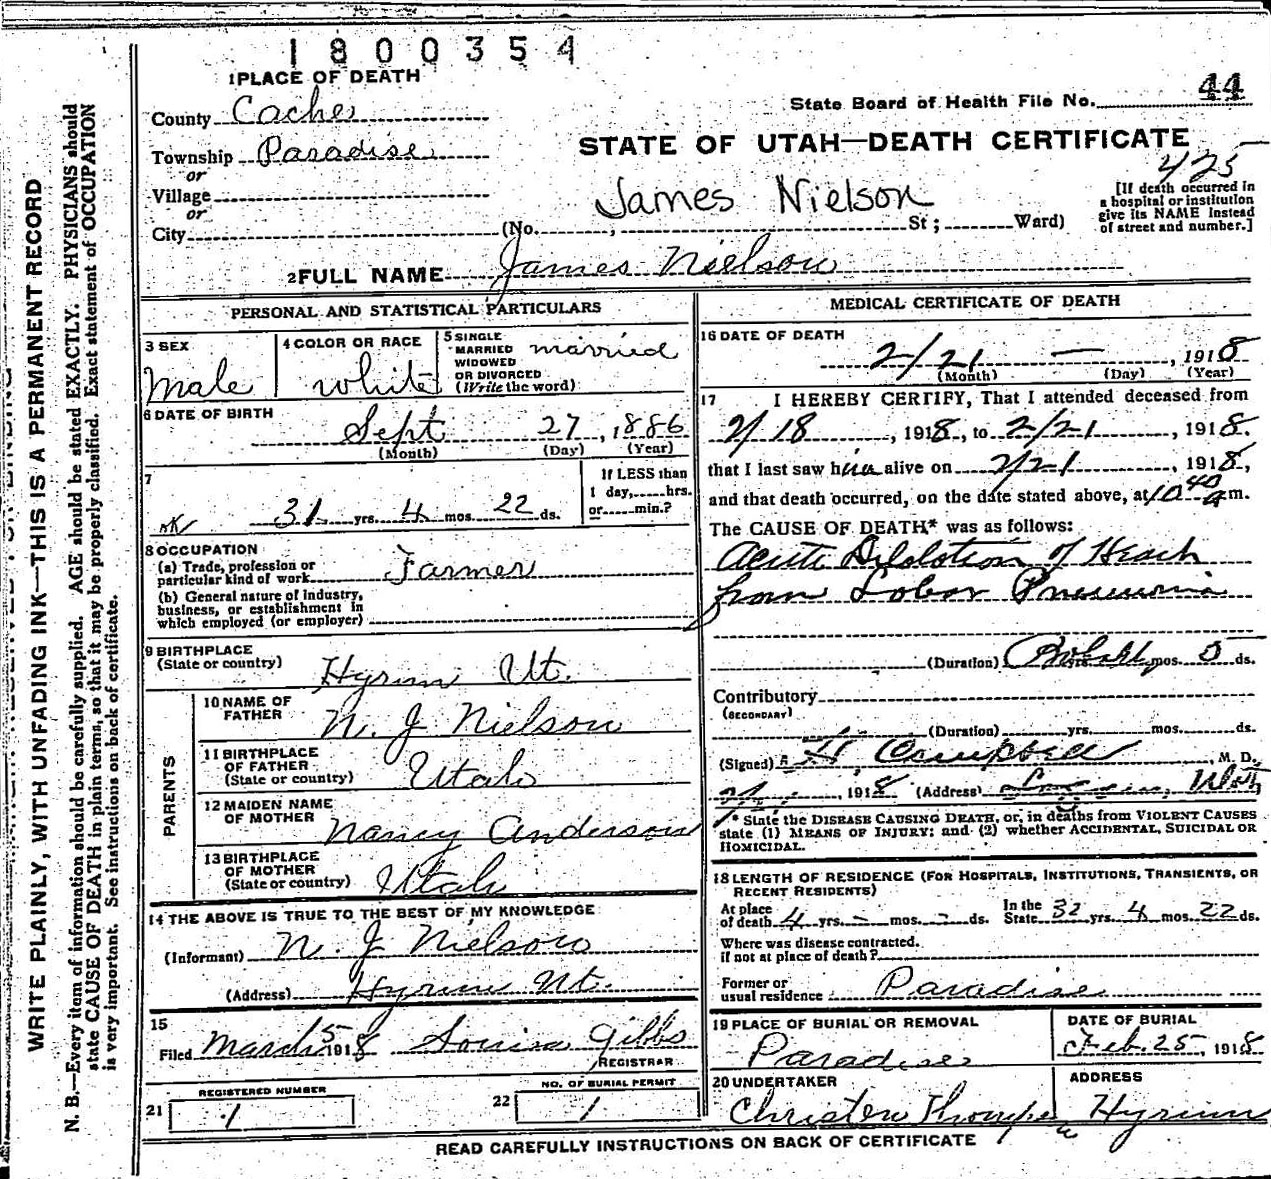 1800354
1 PLACE OF DEATH
County Cache
State Board of Health File No. 44
Township Paradise
or
STATE OF UTAH—DEATH CERTIFICATE
425
Village
or
James Nielson
[If death occurred in
a hospital or institution
give its NAME instead
of street and number.]
City (No. , St; Ward)
2 FULL NAME James Nielson
PERSONAL AND STATISTICAL PARTICULARS
3 SEX
Male
4 COLOR OR RACE
White
5 SINGLE
MARRIED
WIDOWED
OR DIVORCED
(Write the word)
married
6 DATE OF BIRTH
Sept 27, 1886
(Month) (Day) (Year)
7
31 yrs. 4 mos. 22 ds.
If LESS than
1 day, hrs.
or min.?
8 OCCUPATION
(a) Trade, profession or
particular kind of work Farmer
(b) General nature of industry,
business, or establishment in
which employed (or employer)
9 BIRTHPLACE
(State or country) Hyrum Ut.
PARENTS
10 NAME OF
FATHER N. J Nielson
11 BIRTHPLACE
OF FATHER
(State or country) Utah
12 MAIDEN NAME
OF MOTHER Nancy Anderson
13 BIRTHPLACE
OF MOTHER
(State or country) Utah
14 THE ABOVE IS TRUE TO THE BEST OF MY KNOWLEDGE
(Informant) N. J Nielson
(Address) Hyrum Ut.
15
Filed March 5 1918 Louisa Gibbs
REGISTRAR
REGISTERED NUMBER
21 1
NO. OF BURIAL PERMIT
22 1
MEDICAL CERTIFICATE OF DEATH
16 DATE OF DEATH
2/21 — , 1918
(Month) (Day) (Year)
17 I HEREBY CERTIFY, That I attended deceased from
2/18, 1918, to 2/21, 1918.
that I last saw him alive on 2/21, 1918,
and that death occurred, on the date stated above, at 10 40 a m.
The CAUSE OF DEATH* was as follows:
Acute Dilation of Heart
from Lobar Pneumonia
(Duration) Probably yrs. mos. 5 ds.
Contributory
(SECONDARY)
(Duration) yrs. mos. ds.
(Signed) Campbell, M. D.
, 1918 (Address) , Utah
* State the DISEASE CAUSING DEATH, or, in deaths from VIOLENT CAUSES
state (1) MEANS OF INJURY; and (2) whether ACCIDENTAL, SUICIDAL OR
HOMICIDAL.
18 LENGTH OF RESIDENCE (FOR HOSPITALS, INSTITUTIONS, TRANSIENTS, OR
RECENT RESIDENTS)
At place
of death 4 yrs. - mos. - ds.
In the
State 32 yrs. 4 mos. 22 ds.
Where was disease contracted.
if not at place of death?
Former or
usual residence Paradise
19 PLACE OF BURIAL OR REMOVAL
Paradise
DATE OF BURIAL
Feb. 25, 1918
20 UNDERTAKER
Christen
ADDRESS
Hyrum
READ CAREFULLY INSTRUCTIONS ON BACK OF CERTIFICATE
WRITE PLAINLY, WITH UNFADING INK—THIS IS A PERMANENT RECORD
N. B.—Every item of information should be carefully supplied. AGE should be stated EXACTLY. PHYSICIANS should
state CAUSE OF DEATH in plain terms, so that it may be properly classified. Exact statement of OCCUPATION
is very important. See instructions on back of certificate.